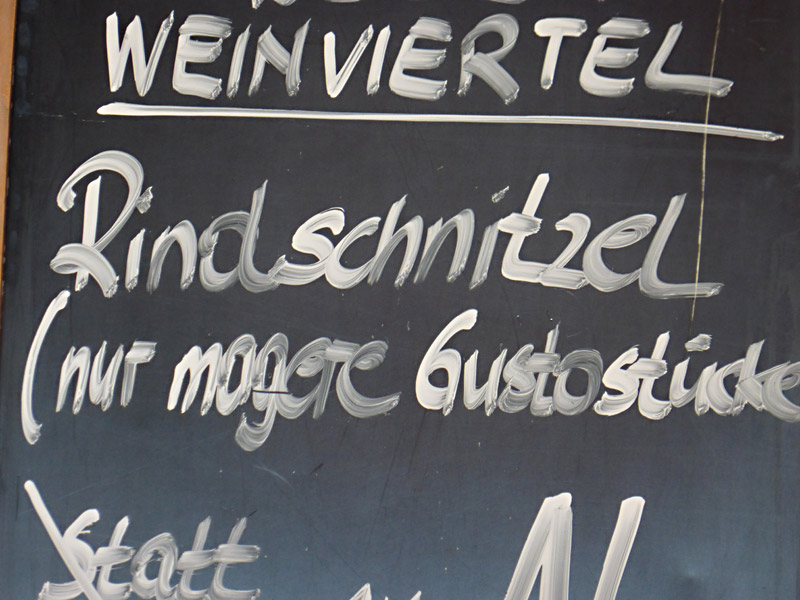 WEINVIERTEL
Rindschnitzel
(nur magere Gustostücke
Statt